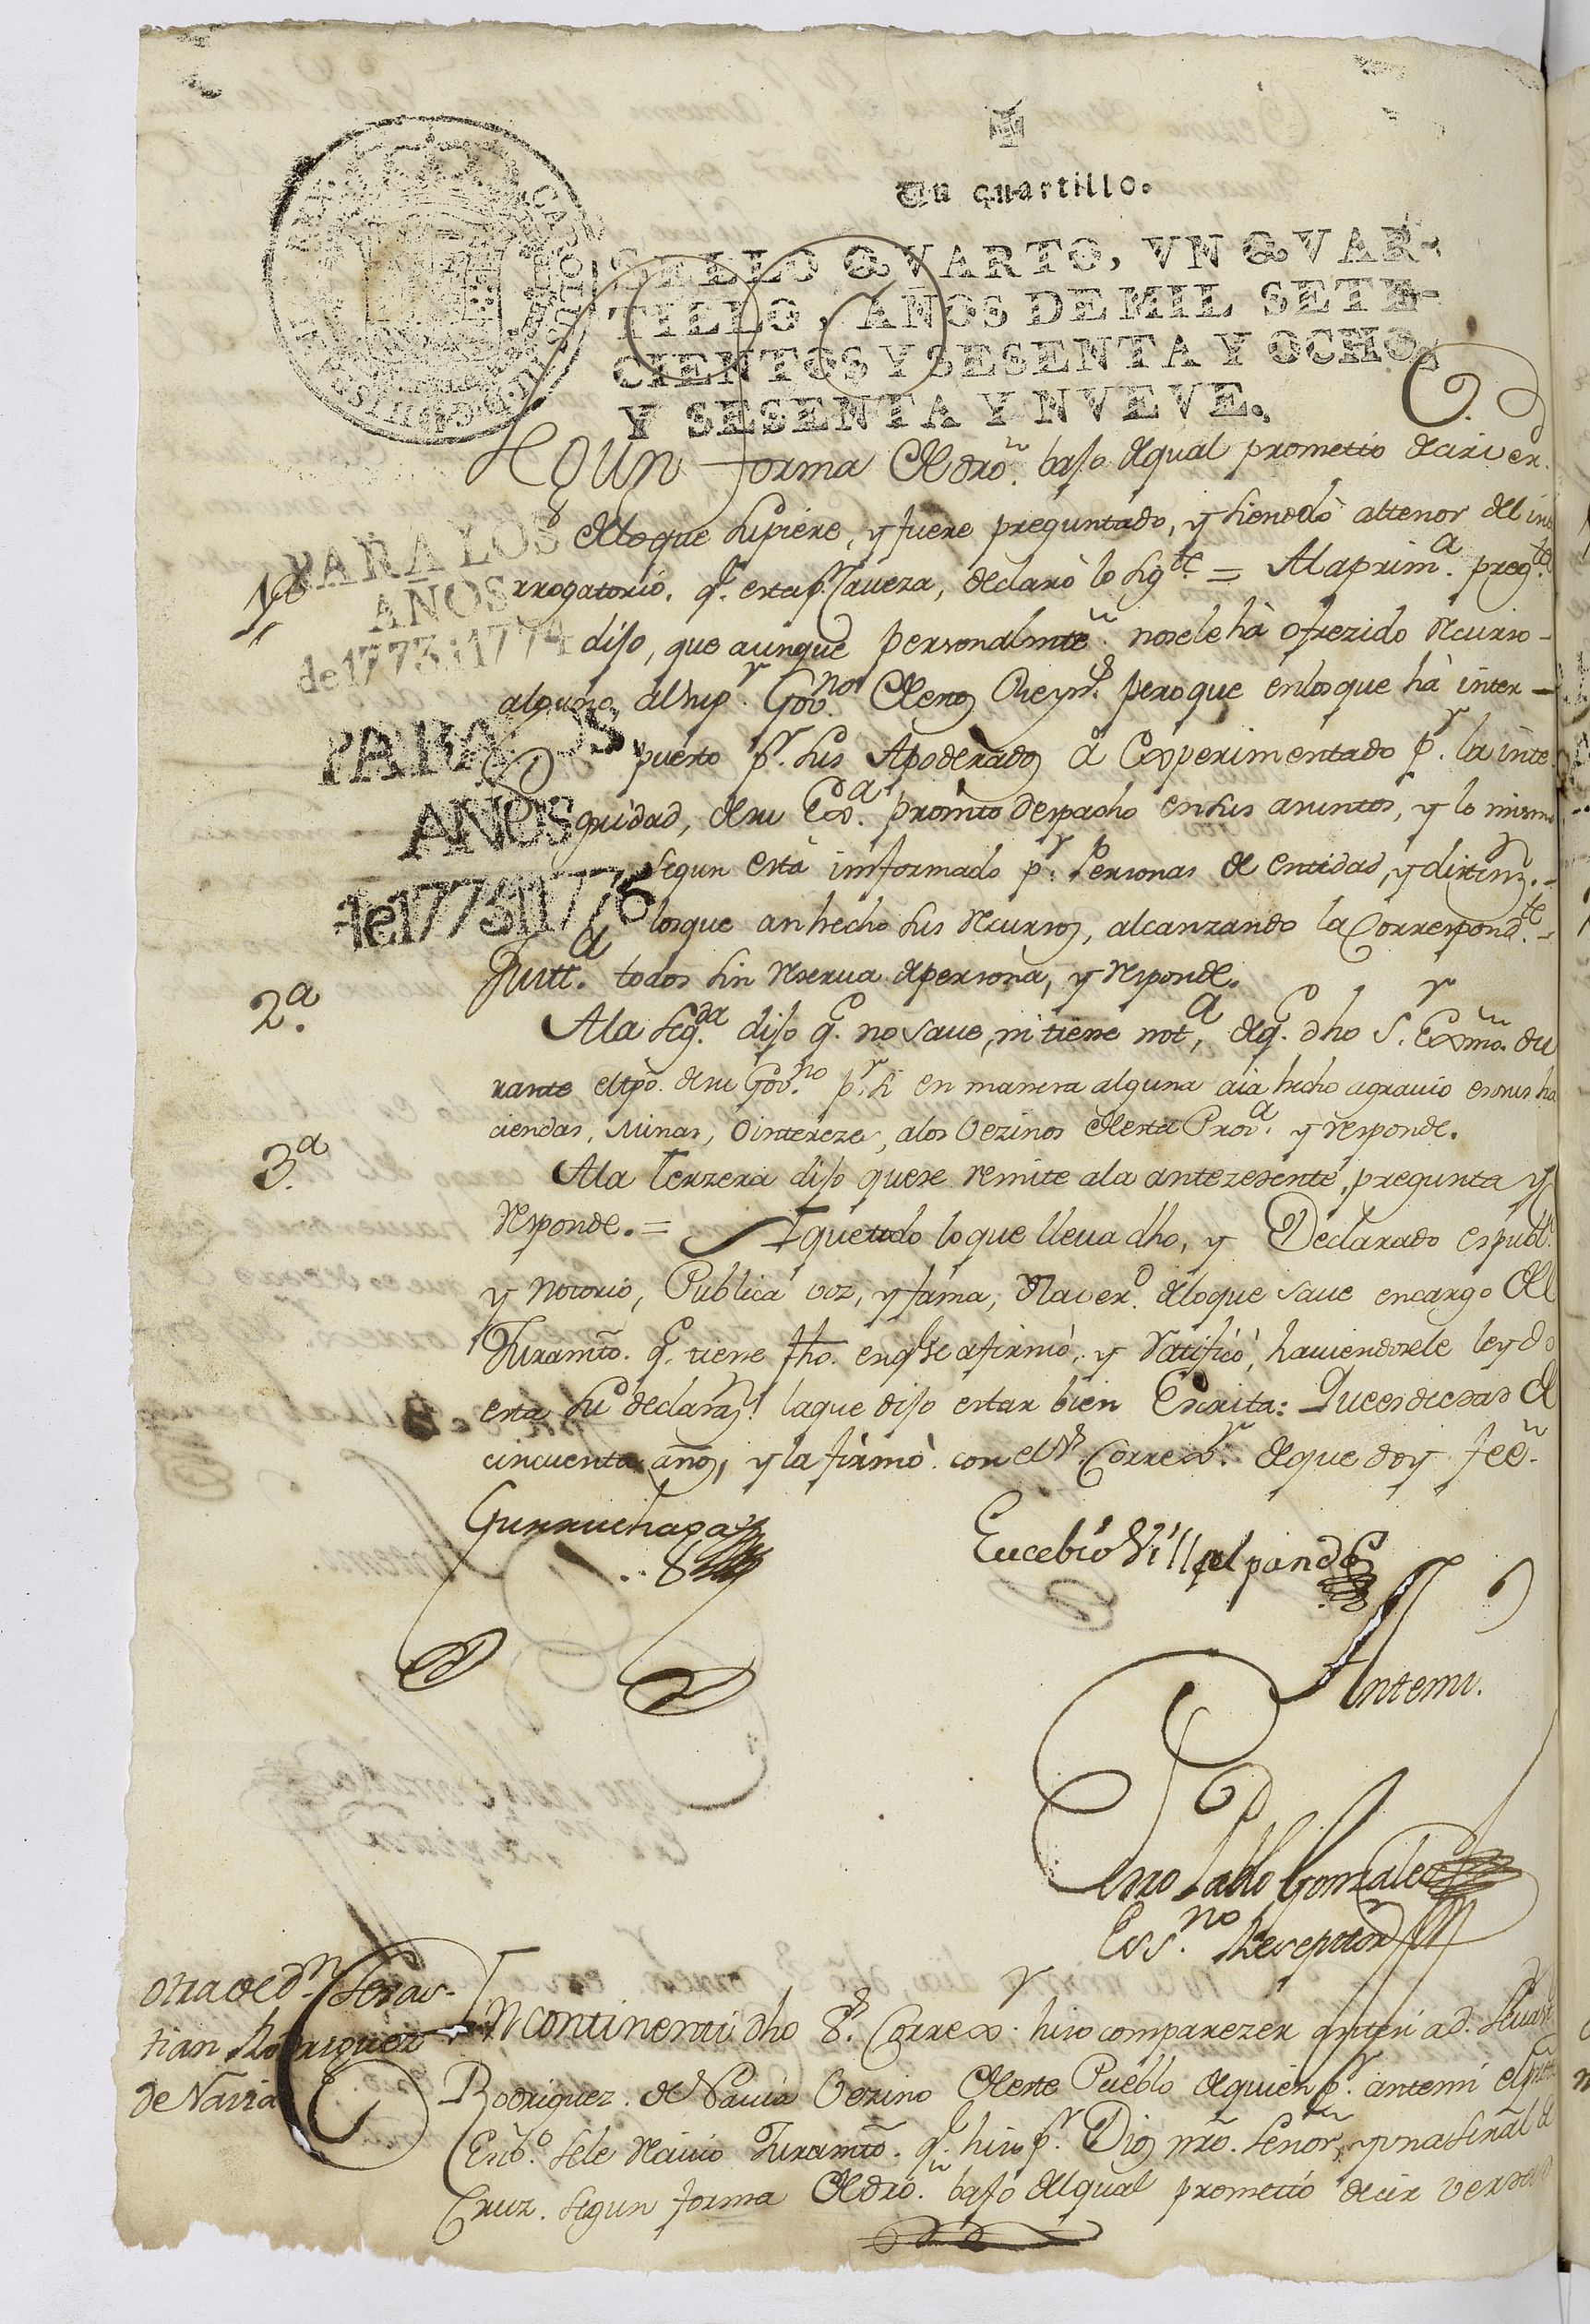 Un quartillo.
SELLO QVARTO, VN QVAR-
TILLO, AÑOS DE MIL SETE-
CIENTOS Y SESENTA Y OCHO,
Y SESENTA Y NVEVE.
PARA LOS
AÑOS
de 1773 i 1774
PARA OS
AÑOS
de 1773 1776
segun forma de dro. bajo del qual prometio decir ver.
de lo que supiere, y fuere preguntado, y siendolo al tenor del inte
1ª
rrogatorio, q.e esta p.r Caveza, declaró lo sig.te = A la prim.a preg.ta
dijo, que aunque personalmte. no se le hà ofrezido recurso
alguno, al sup.r Gov.no de estos Reyn.s pero que en los que hà inter-
puesto p.r sus Apoderados à experimentado p.r la inte
gridad, de su Exª. promto despacho en sus asuntos, y lo mismo
segun està imformado p.r Personas de entidad, y distinz.n
los que an hecho sus recursos, alcanzando la Correspond.te
Justt.a todos sin reserva de persona, y responde.
2ª.
A la seg.da dijo q.e no save, ni tiene not.a de q.e dho S.r Exmo. du
rante el tpo. de su Gov.no p.r si en manera alguna aia hecho agravio en sus ha
ciendas, Minas, o intereze, a los Vezinos de esta Prov.a y responde.
3ª.
A la Terzera dijo que se remite a la antezedente pregunta y
responde. = Y que todo lo que lleva dho, y Declarado es publ.co
y notorio, Publica voz, y fama, y la ver.d de lo que save en cargo del
Juramto. q.e tiene fho. en q.e se afirmò, y ratificò, haviendosele leydo
esta su declaraz.n la que dijo estar bien Escrita: Que es de edad de
cincuenta años, y la firmò con el S.r Correx.r de que doy feé.
Gurruchaga
Eucebio Villalpando
Ante mi.
Pedro Pablo Gonzales
Ess.no Reseptor
otra de D.n Sevas-
tian Rodriguez
de Navia
Yncontinenti dho S.r Correx.r hizo comparezer ante si a d. Sevast.n
Rodriguez de Navia Vezino de este Pueblo de quien p.r ante mi el pres.te
Esno. se le recivio Juramto. q.e hizo p.r Dios nro. Señor, y una señal de
Cruz. segun forma de dro. bajo del qual prometió decir verdad